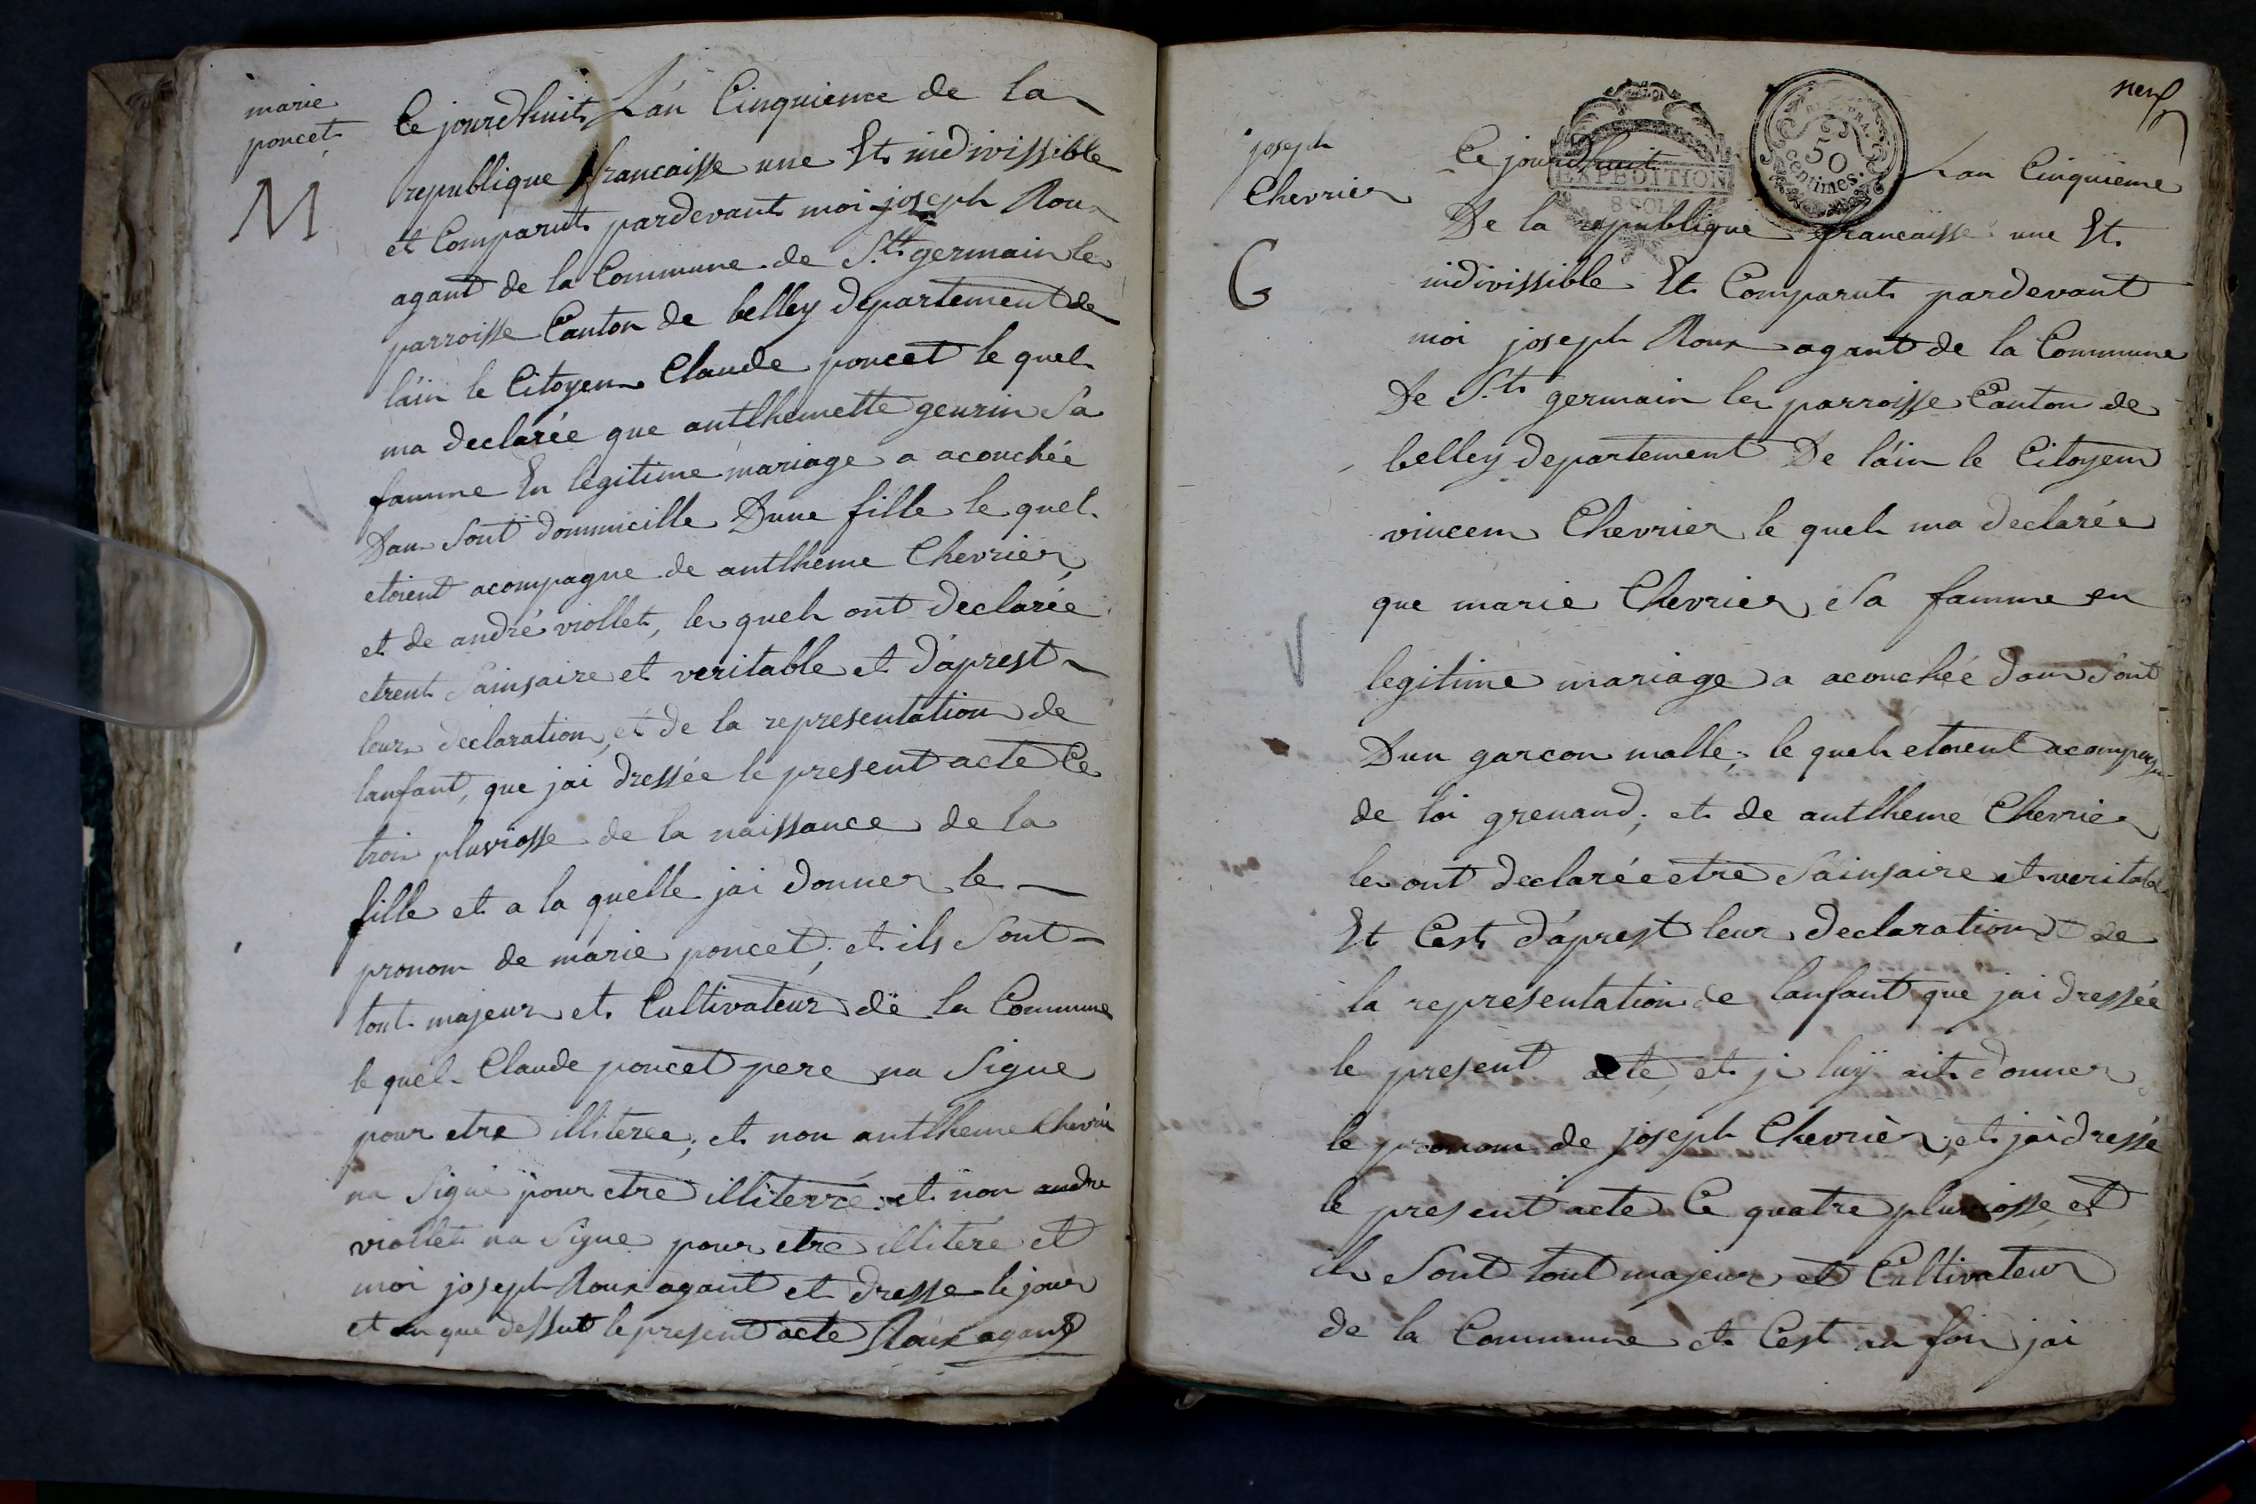 marie
poncet
M
Ce jourdhuit Lán Cinquieme de la
republique francaisse une Et indivissible
et Comparut pardevant moi joseph Roux
agant de la Commune de St. germain les
parroisse Canton de belley departement de
láin le Citoyen Claude poncet le quel
ma declarée que antlhemette geurin Sa
famme En legitime mariage a acouchée
Dan Sont dommicille Dune fille le quel
etoient acompagne de antlheme Chevrier
et de andré viollet, les quels ont declarée
etrent Sainsaire et veritable et d'áprest
leurs declaration, et de la representation de
lanfant, que jai dressée le present acte Ce
trois pluviosse de la naissance de la
fille et a la quelle jai donner le
pronom de marie poncet; et ils Sont
tout majeur et Cultivateur dë la Commune
le quel Claude poncet pere na Signe
pour etre illiteree; et non antlheme Chevrie
na Signé pour etre illiterré et non andre
viollet na Signe pour etre illitere et
moi joseph Roux agant et dresse le jour
et an que dessut le present acte Roux agant
neuf
EXPEDITION
8 SOLS
50
centimes.
joseph
Chevrier
G
Ce jourdhuit Lan Cinquieme
De la republique francaisse une Et
indivissible Et Comparut pardevant
moi joseph Roux agant de la Commune
De St. germain les parroisse Canton de
belley departement De láin le Citoyen
vincem Chevrier le quel ma declarée
que marie Chevrier Sa famme en
legitime mariage a acouchée dan Sont
Dun garcon malle; le quels etoient acompagn
de loi grenand; et de antlheme Chevrier
les ont declarée etre Sainsaire et veritable
Et Cest d'áprest leur declaration et de
la representation de lanfant que jai dressée
le present acte, et je luÿ ait donner
le pronom de joseph Chevriér, et jai dressé
le present acte Ce quatre pluviosse et
ils Sont tout majeur et Cultivateur
de la Commune et Cest na foi jai